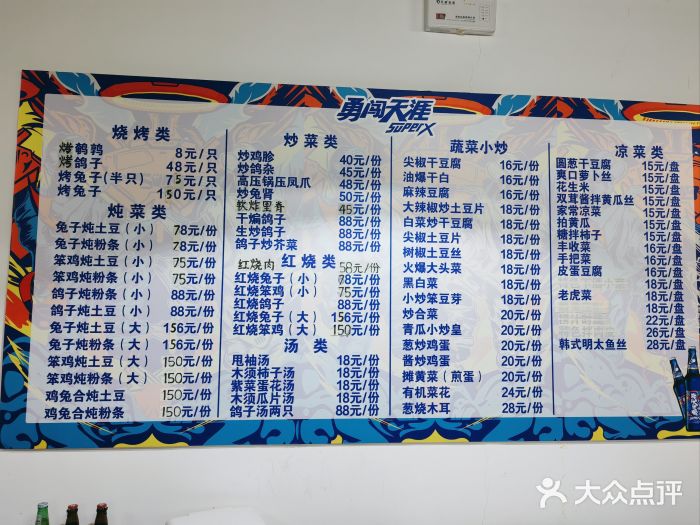 勇闯天涯
superX
烧烤类
烤鹌鹑 8元/只
烤鸽子 48元/只
烤兔子(半只) 75元/只
烤兔子 150元/只
炖菜类
兔子炖土豆(小) 78元/份
兔子炖粉条(小) 78元/份
笨鸡炖土豆(小) 75元/份
笨鸡炖粉条(小) 75元/份
鸽子炖粉条(小) 88元/份
鸽子炖土豆(小) 88元/份
兔子炖土豆(大) 156元/份
兔子炖粉条(大) 156元/份
笨鸡炖土豆(大) 150元/份
笨鸡炖粉条(大) 150元/份
鸡兔合炖土豆 150元/份
鸡兔合炖粉条 150元/份
炒菜类
炒鸡胗 40元/份
炒鸽杂 45元/份
高压锅压凤爪 48元/份
炒兔肾 50元/份
软炸里脊 45元/份
干煸鸽子 88元/份
生炒鸽子 88元/份
鸽子炒芥菜 88元/份
红烧类
红烧肉 58元/份
红烧兔子(小) 78元/份
红烧笨鸡(小) 75元/份
红烧鸽子 88元/份
红烧兔子(大) 156元/份
红烧笨鸡(大) 150元/份
汤类
甩袖汤 18元/份
木须柿子汤 18元/份
紫菜蛋花汤 18元/份
木须瓜片汤 18元/份
鸽子汤两只 88元/份
蔬菜小炒
尖椒干豆腐 16元/份
油爆干白 16元/份
麻辣豆腐 16元/份
大辣椒炒土豆片 16元/份
白菜炒干豆腐 16元/份
尖椒土豆片 16元/份
树椒土豆丝 18元/份
火爆大头菜 18元/份
黑白菜 18元/份
小炒笨豆芽 18元/份
炒合菜 20元/份
青瓜小炒皇 20元/份
葱炒鸡蛋 20元/份
酱炒鸡蛋 20元/份
摊黄菜(煎蛋) 20元/份
有机菜花 24元/份
葱烧木耳 28元/份
凉菜类
圆葱干豆腐 15元/盘
爽口萝卜丝 15元/盘
花生米 15元/盘
双茸酱拌黄瓜丝 15元/盘
家常凉菜 15元/盘
拍黄瓜 15元/盘
糖拌柿子 16元/盘
丰收菜 16元/盘
手把菜 16元/盘
皮蛋豆腐 18元/盘
18元/盘
老虎菜 18元/盘
18元/盘
22元/盘
26元/盘
韩式明太鱼丝 28元/盘
大众点评